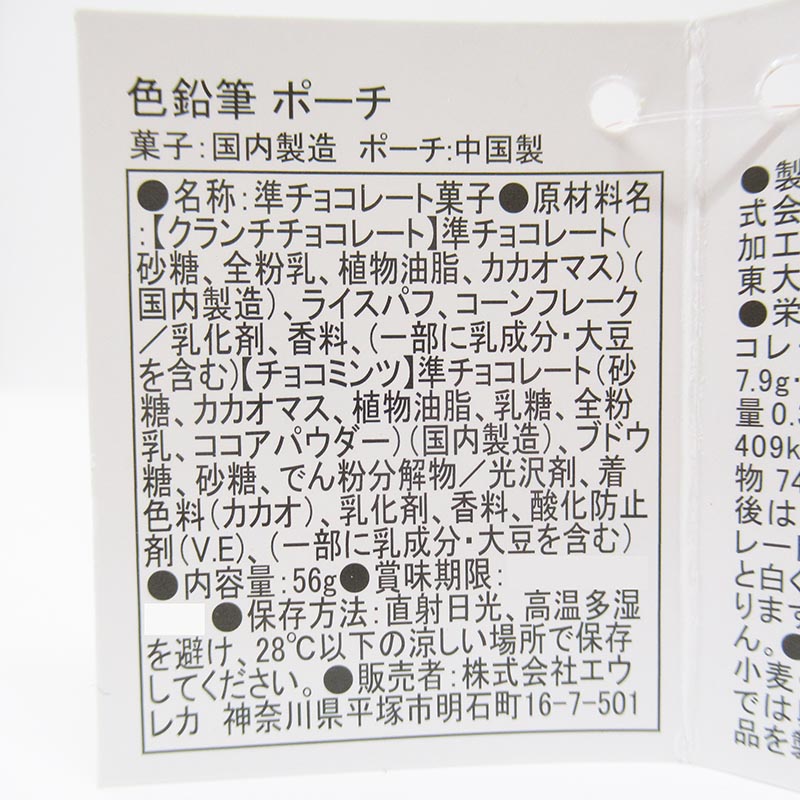 色鉛筆 ポーチ
菓子:国内製造 ポーチ:中国製
●名称:準チョコレート菓子●原材料名
:【クランチチョコレート】準チョコレート(
砂糖、全粉乳、植物油脂、カカオマス)(
国内製造)、ライスパフ、コーンフレーク
/乳化剤、香料、(一部に乳成分・大豆
を含む)【チョコミンツ】準チョコレート(砂
糖、カカオマス、植物油脂、乳糖、全粉
乳、ココアパウダー)(国内製造)、ブドウ
糖、砂糖、でん粉分解物/光沢剤、着
色料(カカオ)、乳化剤、香料、酸化防止
剤(V.E)、(一部に乳成分・大豆を含む)
●内容量:56g●賞味期限:
●保存方法:直射日光、高温多湿
を避け、28℃以下の涼しい場所で保存
してください。●販売者:株式会社エウ
レカ 神奈川県平塚市明石町16-7-501
●製
式会
加工
東大
●栄
コレッ
7.9g・
量0.
409k
物 74
後は
レート
と白く
ります
ん。●
小麦
では
品を製